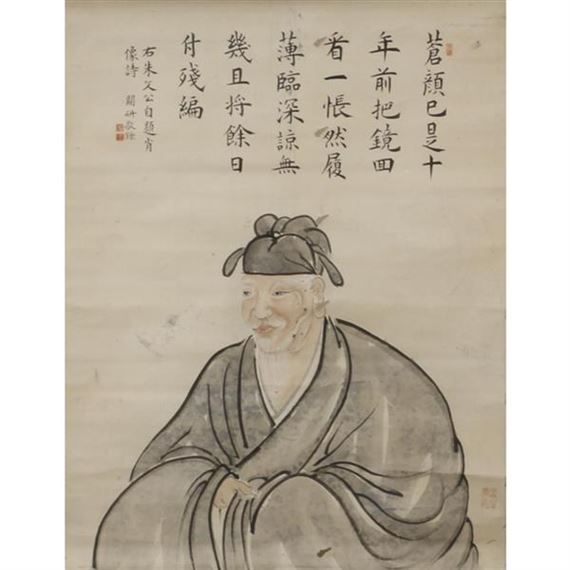 蒼顔已是十
年前把鏡回
看一悵然履
薄臨深諒無
幾且將餘日
付殘編
右朱文公自題肖
像詩 關研敬